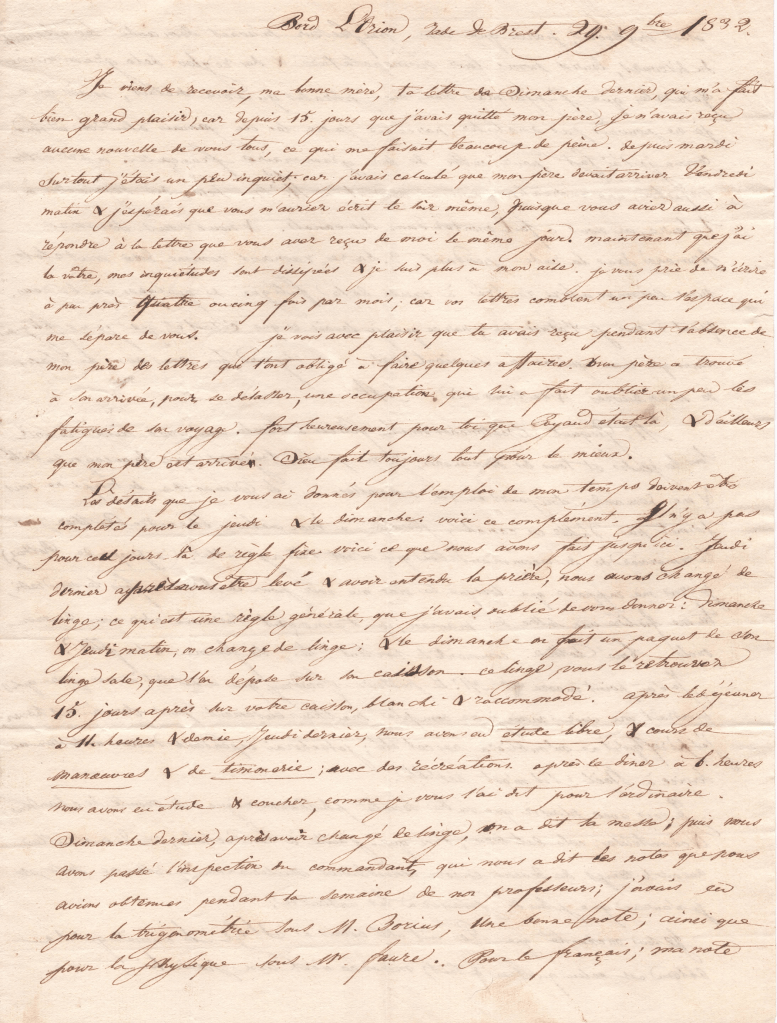 Bord L'Orion, rade de Brest. 29. 9bre 1832.
Je viens de recevoir, ma bonne mère, ta lettre de Dimanche dernier, qui m'a fait
bien grand plaisir, car depuis 15. jours que j'avais quitté mon père, je n'avais reçu
aucune nouvelle de vous tous, ce qui me faisait beaucoup de peine. depuis mardi
surtout j'étais un peu inquiet, car j'avais calculé que mon père devait arriver Vendredi
matin & j'espérais que vous m'auriez écrit le soir même, puisque vous aviez aussi à
répondre à la lettre que vous avez reçue de moi le même jour. maintenant que j'ai
la vôtre, mes inquiétudes sont dissipées & je suis plus à mon aise. je vous prie de m'écrire
à peu près quatre ou cinq fois par mois; car vos lettres comblent un peu l'espace qui
me sépare de vous. je vois avec plaisir que tu avais reçu pendant l'absence de
mon père des lettres qui t'ont obligé à faire quelques affaires. mon père a trouvé
à son arrivée, pour se délasser, une occupation qui lui a fait oublier un peu les
fatigues de son voyage. fort heureusement pour toi que était là, & d'ailleurs
que mon père est arrivé. Dieu fait toujours tout pour le mieux.
Les détails que je vous ai donnés pour l'emploi de mon temps doivent être
complétés pour le jeudi & le dimanche. voici ce complément. Il n'y a pas
pour ces jours là de règle fixe. voici ce que nous avons fait jusqu'ici. Jeudi
dernier après nous être levé & avoir entendu la prière, nous avons changé de
linge; ce qui est une règle générale, que j'avais oublié de vous donner: dimanche
& Jeudi matin, on change de linge; & le dimanche on fait un paquet de son
linge sale, que l'on dépose sur son caisson. ce linge vous le retrouvez
15. jours après sur votre caisson, blanchi & raccommodé. après le déjeuner
à 11. heures & demie, Jeudi dernier, nous avons eu étude libre, & cours de
manœuvres & de timonerie; avec des récréations. après le diner à 6. heures
nous avons eu étude & coucher, comme je vous l'ai dit pour l'ordinaire.
Dimanche dernier, après avoir changé de linge, on a dit la messe; puis nous
avons passé l'inspection du commandant, qui nous a dit les notes que nous
avions obtenues pendant la semaine de nos professeurs; j'avais eu
pour la trigonométrie sous M. Borius, une bonne note; ainsi que
pour la physique sous Mr. faure.. Pour le français; ma note